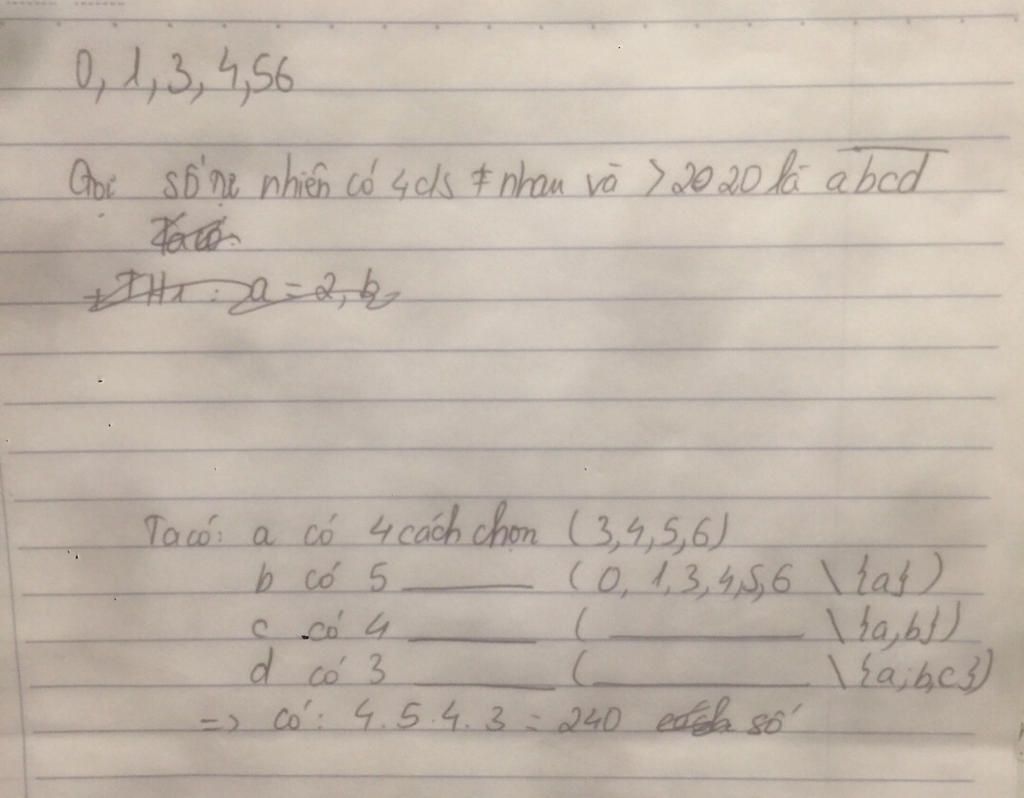 0, 1, 3, 4, 56
Gọi số tự nhiên có 4 c/s ≠ nhau và > 2020 là abcd
Ta có:
+ TH1: a = 2, b
Ta có: a có 4 cách chọn (3,4,5,6)
b có 5 ——— (0, 1, 3, 4,5,6 \ {a})
c có 4 ——— ( ——— \ {a,b})
d có 3 ——— ( ——— \ {a;b,c})
=> có: 4.5.4.3 = 240 số